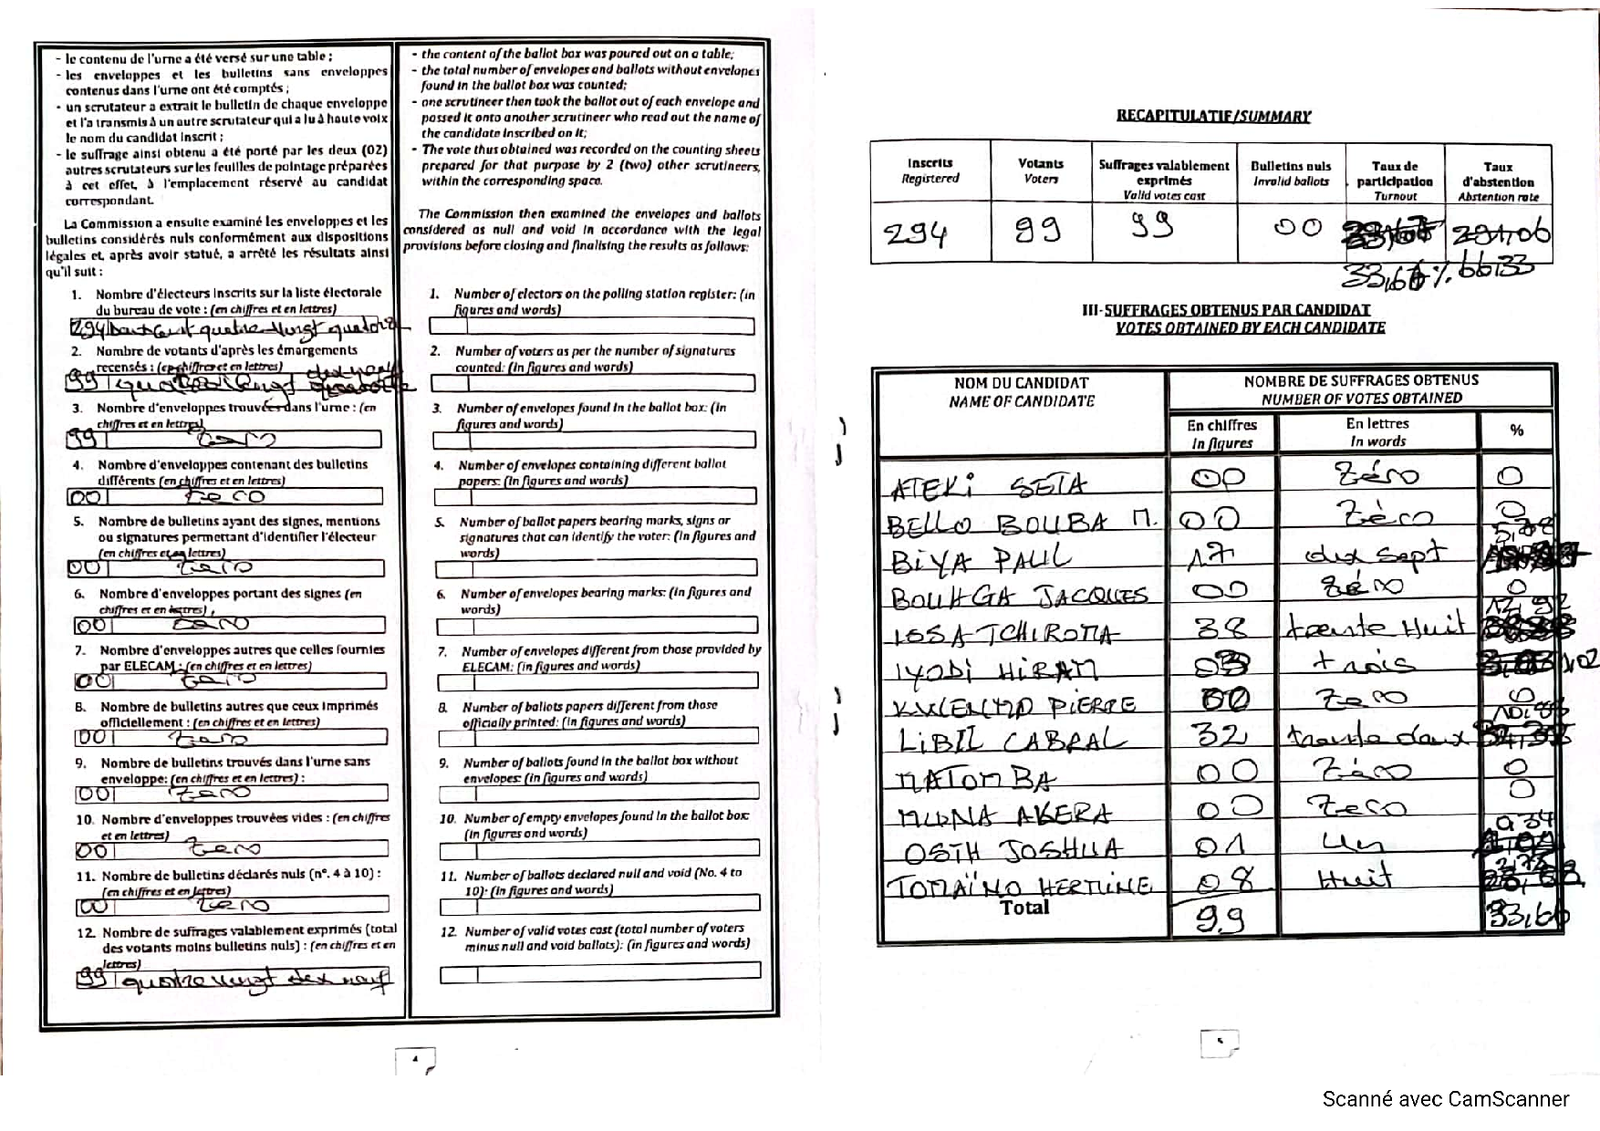 - le contenu de l'urne a été versé sur une table ;
- les enveloppes et les bulletins sans enveloppes
contenus dans l'urne ont été comptés ;
- un scrutateur a extrait le bulletin de chaque enveloppe
et l'a transmis à un autre scrutateur qui a lu à haute voix
le nom du candidat inscrit ;
- le suffrage ainsi obtenu a été porté par les deux (02)
autres scrutateurs sur les feuilles de pointage préparées
à cet effet, à l'emplacement réservé au candidat
correspondant.
La Commission a ensuite examiné les enveloppes et les
bulletins considérés nuls conformément aux dispositions
légales et, après avoir statué, a arrêté les résultats ainsi
qu'il suit :
1. Nombre d'électeurs inscrits sur la liste électorale
du bureau de vote : (en chiffres et en lettres)
294
2. Nombre de votants d'après les émargements
recensés : (en chiffres et en lettres)
99 quatre vingt
3. Nombre d'enveloppes trouvées dans l'urne : (en
chiffres et en lettres)
99 zero
4. Nombre d'enveloppes contenant des bulletins
différents (en chiffres et en lettres)
00 zero
5. Nombre de bulletins ayant des signes, mentions
ou signatures permettant d'identifier l'électeur
(en chiffres et en lettres)
00 zero
6. Nombre d'enveloppes portant des signes (en
chiffres et en lettres)
00 zero
7. Nombre d'enveloppes autres que celles fournies
par ELECAM : (en chiffres et en lettres)
00 zero
8. Nombre de bulletins autres que ceux imprimés
officiellement : (en chiffres et en lettres)
00 zero
9. Nombre de bulletins trouvés dans l'urne sans
enveloppe: (en chiffres et en lettres) :
00 zero
10. Nombre d'enveloppes trouvées vides : (en chiffres
et en lettres)
00 zero
11. Nombre de bulletins déclarés nuls (n°. 4 à 10) :
(en chiffres et en lettres)
00 zero
12. Nombre de suffrages valablement exprimés (total
des votants moins bulletins nuls) : (en chiffres et en
lettres)
99 quatre vingt dix neuf
- the content of the ballot box was poured out on a table;
- the total number of envelopes and ballots without envelopes
found in the ballot box was counted;
- one scrutineer then took the ballot out of each envelope and
passed it onto another scrutineer who read out the name of
the candidate inscribed on it;
- The vote thus obtained was recorded on the counting sheets
prepared for that purpose by 2 (two) other scrutineers,
within the corresponding space.
The Commission then examined the envelopes and ballots
considered as null and void in accordance with the legal
provisions before closing and finalising the results as follows:
1. Number of electors on the polling station register: (in
figures and words)
2. Number of voters as per the number of signatures
counted: (in figures and words)
3. Number of envelopes found in the ballot box: (in
figures and words)
4. Number of envelopes containing different ballot
papers: (in figures and words)
5. Number of ballot papers bearing marks, signs or
signatures that can identify the voter: (in figures and
words)
6. Number of envelopes bearing marks: (in figures and
words)
7. Number of envelopes different from those provided by
ELECAM: (in figures and words)
8. Number of ballots papers different from those
officially printed: (in figures and words)
9. Number of ballots found in the ballot box without
envelopes: (in figures and words)
10. Number of empty envelopes found in the ballot box:
(in figures and words)
11. Number of ballots declared null and void (No. 4 to
10): (in figures and words)
12. Number of valid votes cast (total number of voters
minus null and void ballots): (in figures and words)
4
RECAPITULATIF/SUMMARY
Inscrits Votants Suffrages valablement exprimés Bulletins nuls Taux de participation Taux d'abstention
Registered Voters Valid votes cast Invalid ballots Turnout Abstention rate
294 99 99 00
33,66% 66,33
III-SUFFRAGES OBTENUS PAR CANDIDAT
VOTES OBTAINED BY EACH CANDIDATE
NOM DU CANDIDAT NOMBRE DE SUFFRAGES OBTENUS
NAME OF CANDIDATE NUMBER OF VOTES OBTAINED
En chiffres En lettres %
In figures In words
ATEKI SETA 00 Zéro 0
BELLO BOUBA M. 00 Zéro 0
BIYA PAUL 17 dix sept 5,78
BOUHGA JACQUES 00 Zéro 0
ISSA TCHIROMA 38 trente Huit 12,92
IYODI HIRAM 03 trois 1,02
KWEMO PIERRE 00 Zero 0
LIBII CABRAL 32 trente deux
MATOMBA 00 Zéro 0
MUNA AKERA 00 Zero 0
OSIH JOSHUA 01 Un 0,34
TOMAÏNO HERMINE 08 Huit 2,72
Total 99 33,66
5
Scanné avec CamScanner